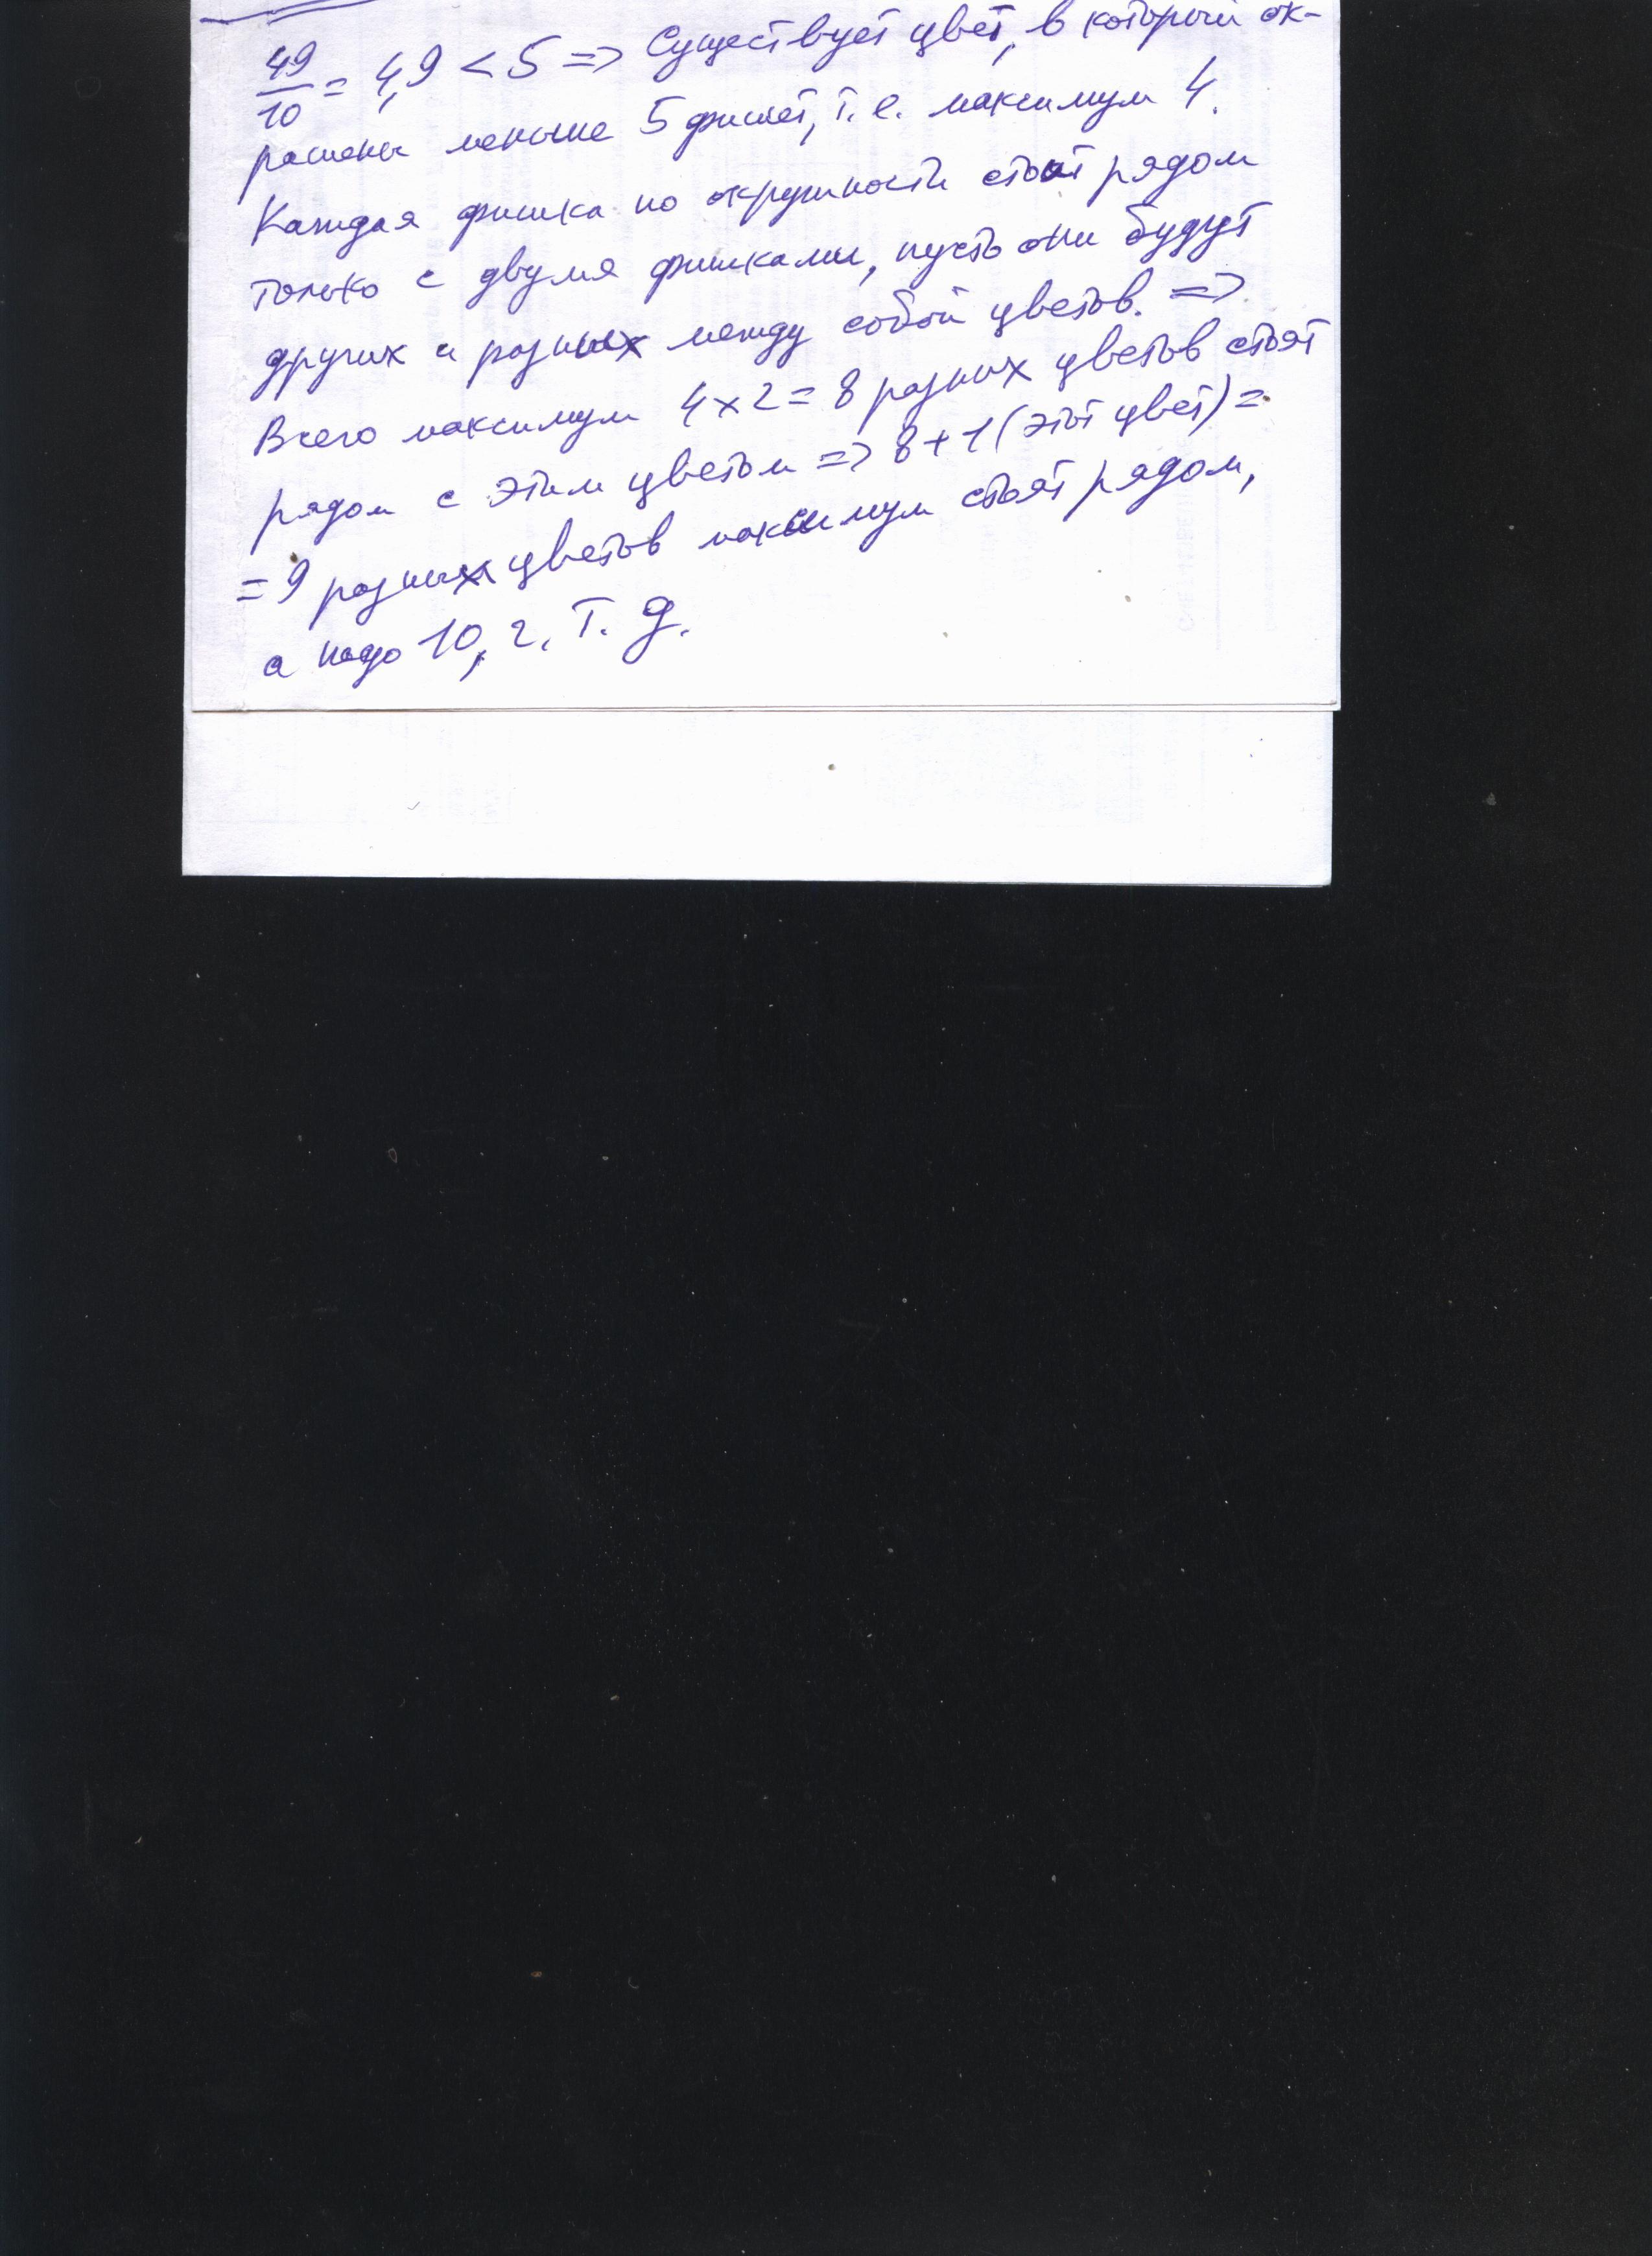 49/10 = 4,9 < 5 => Существует цвет, в который ок-
рашены меньше 5 фишек, т. е. максимум 4.
Каждая фишка по окружности стоит рядом
только с двумя фишками, пусть они будут
других и разных между собой цветов. =>
Всего максимум 4×2=8 разных цветов стоят
рядом с этим цветом => 8+1 (этот цвет) =
= 9 разных цветов максимум стоят рядом,
а надо 10, ч. т. д.